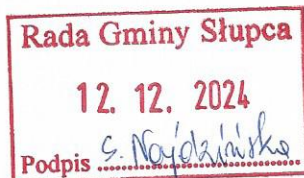 Rada Gminy Słupca
12. 12. 2024
Podpis S. Najdzińska